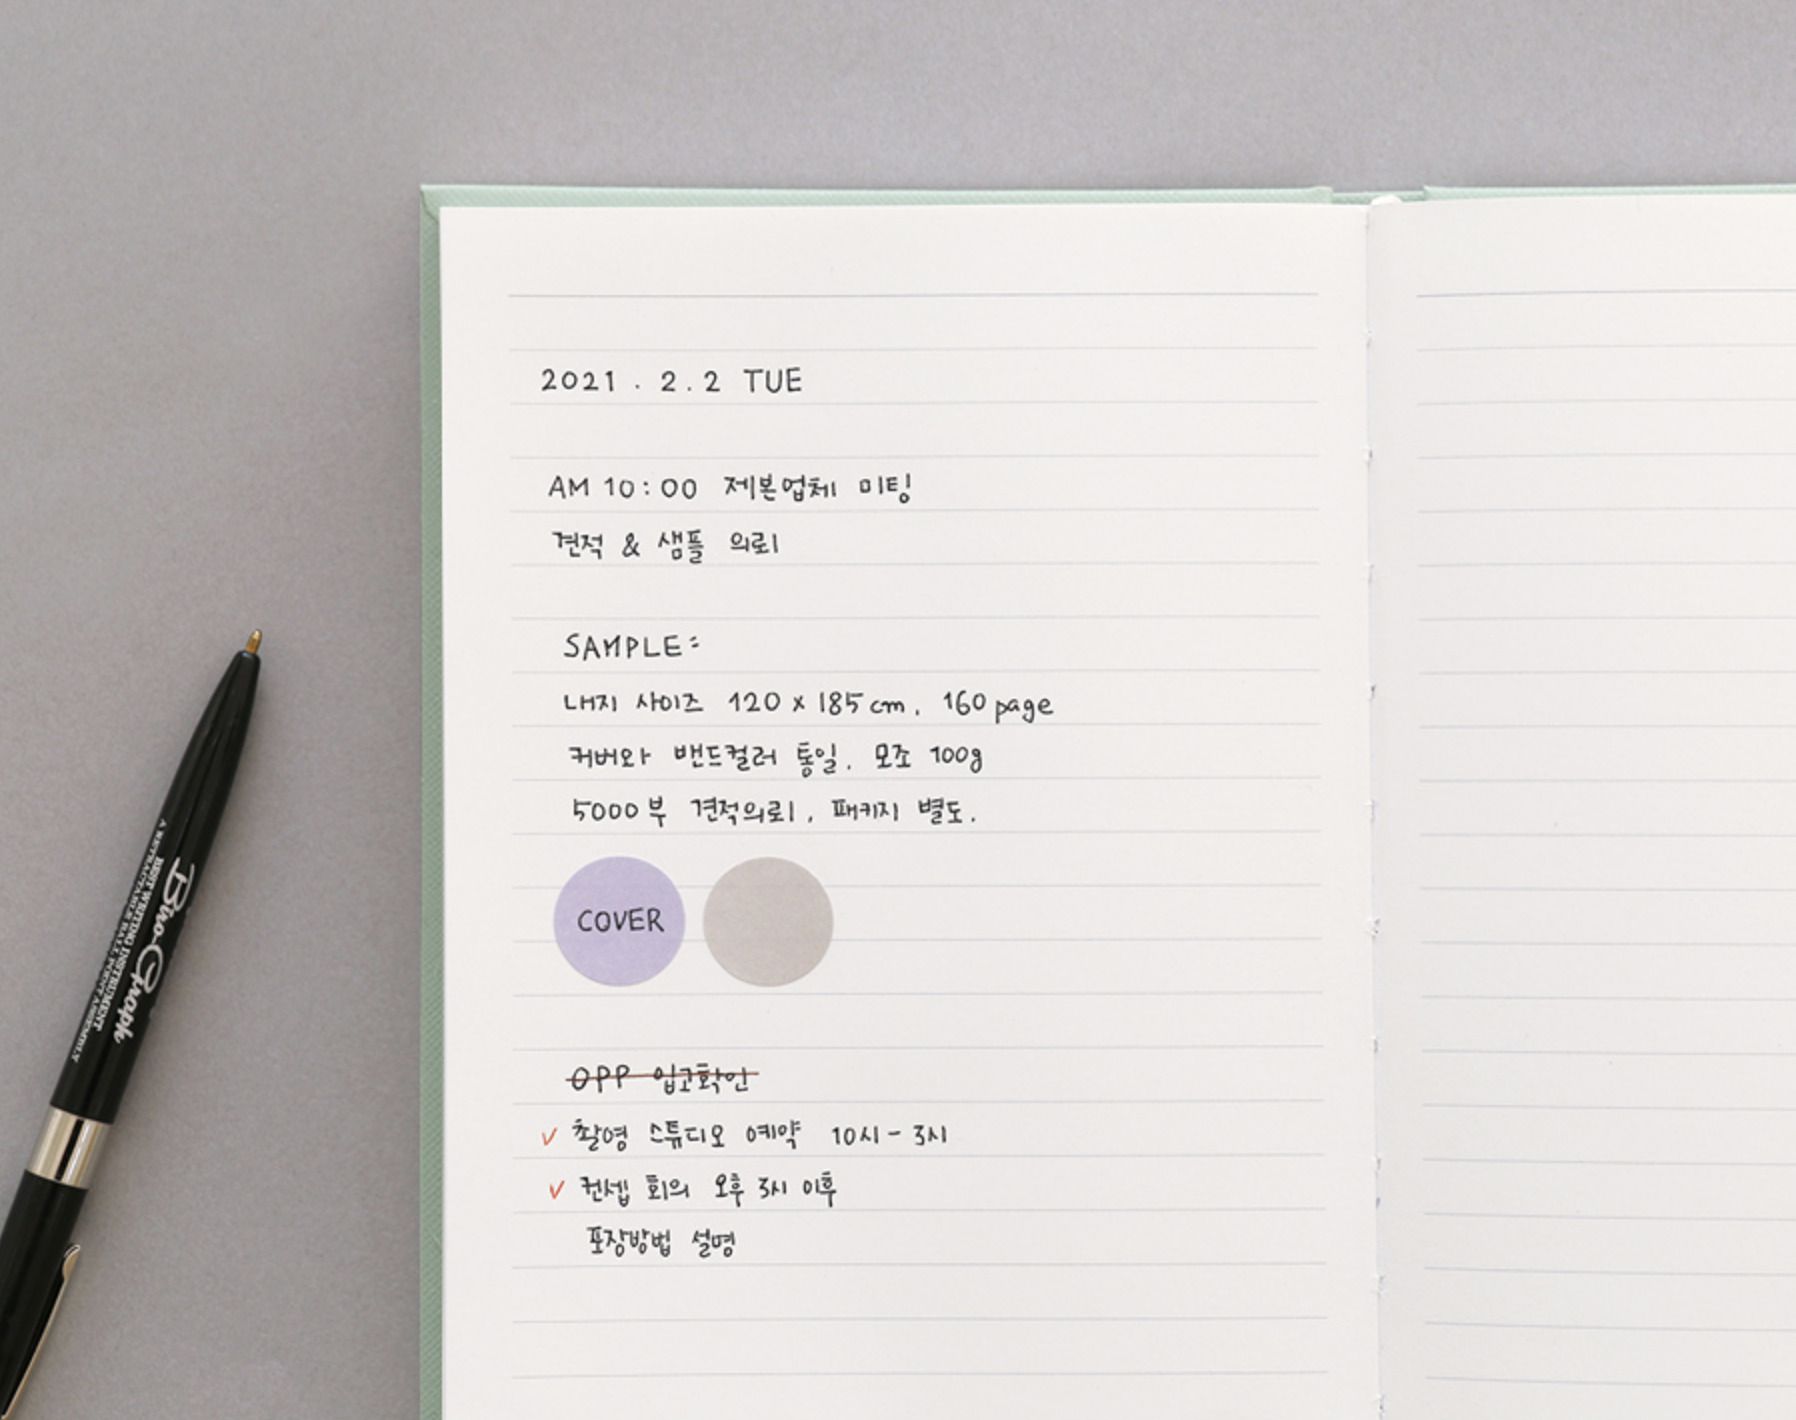 2021 . 2 . 2 TUE
AM 10 : 00 제본업체 미팅
견적 & 샘플 의뢰
SAMPLE:
내지 사이즈 120 x 185 cm . 160 page
커버와 밴드컬러 통일 . 모조 100g
5000 부 견적의뢰 , 패키지 별도 .
COVER
OPP 입고확인
✓ 촬영 스튜디오 예약 10시 - 3시
✓ 컨셉 회의 오후 3시 이후
포장방법 설명
Bino-Graph
BEST WRITING INSTRUMENT
A RETRACTABLE BALL POINT ASSEMBLY